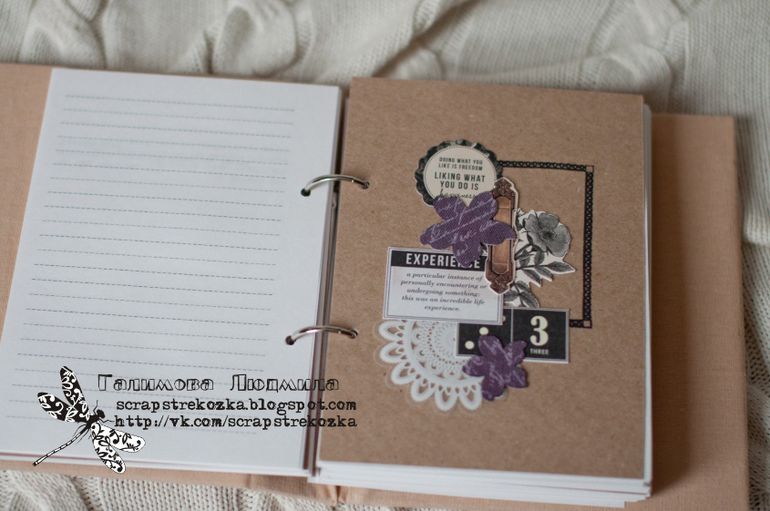 DOING WHAT YOU
LIKE IS FREEDOM
LIKING WHAT
YOU DO IS
EXPERIENCE
a particular instance of
personally encountering or
undergoing something;
this was an incredible life
experience.
3
THREE
Галимова Людмила
scrapstrekozka.blogspot.com
http://vk.com/scrapstrekozka